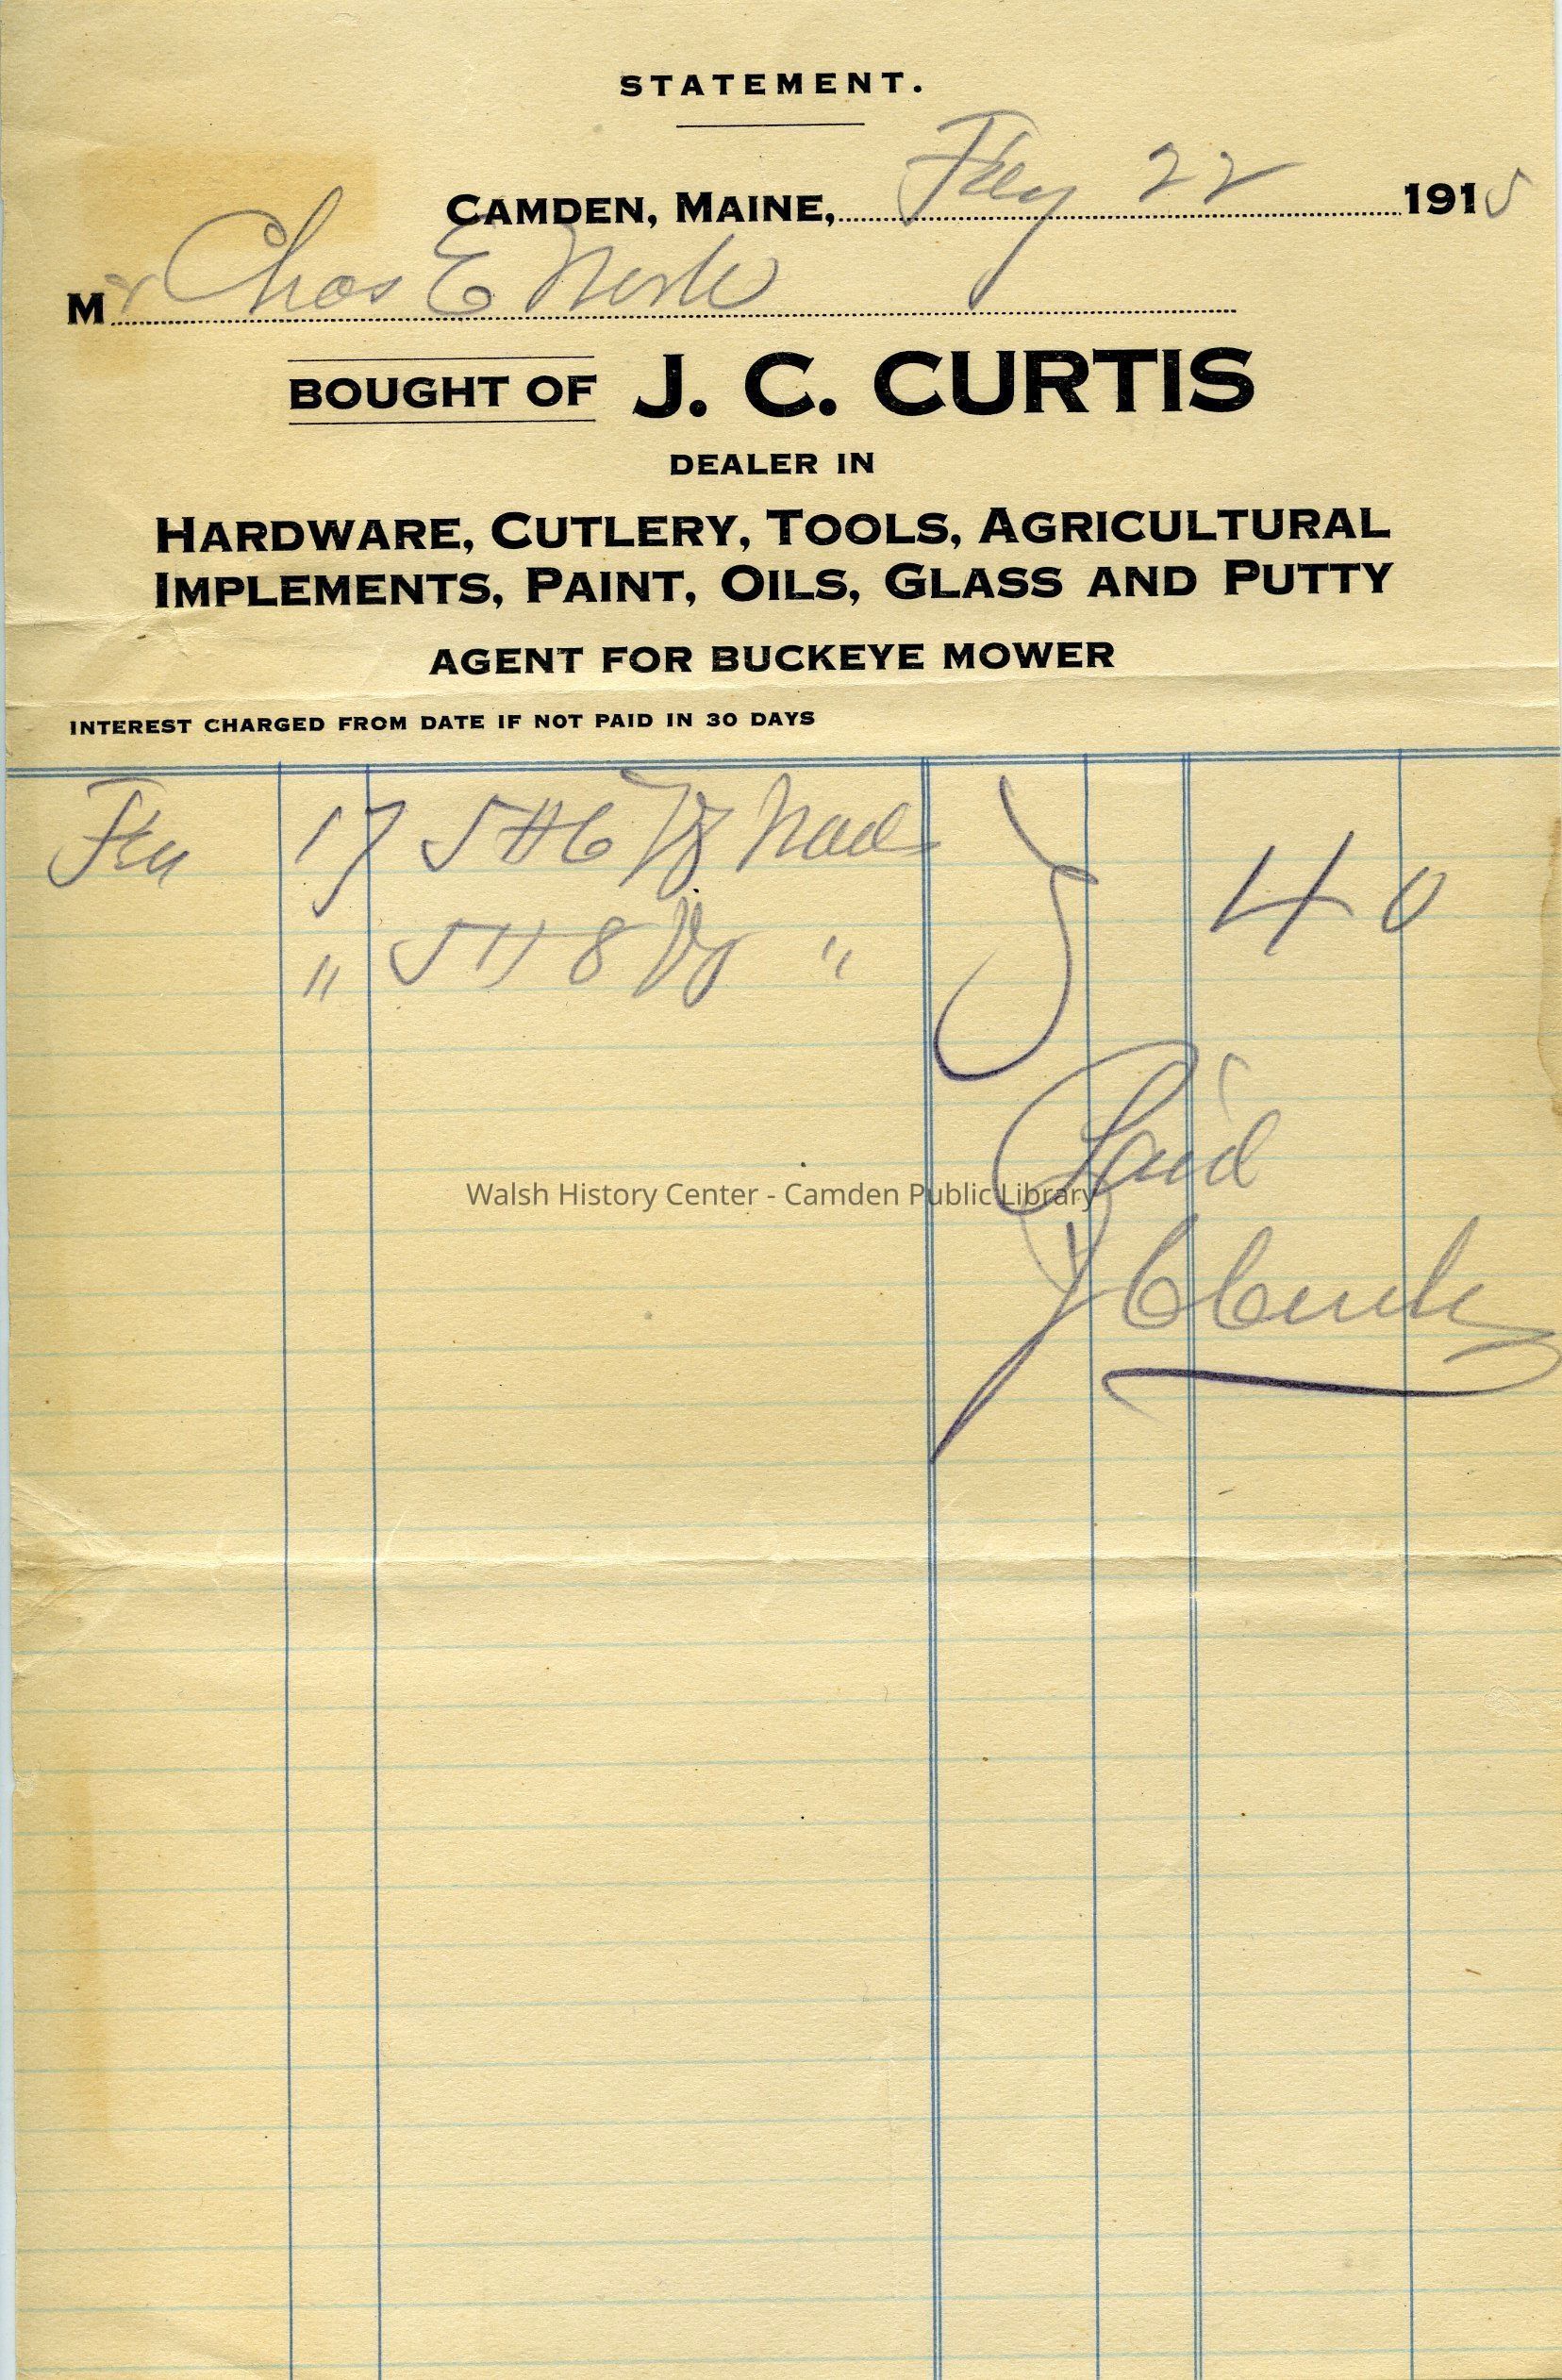 STATEMENT.
CAMDEN, MAINE, Feby 22 1915
Mr Chas E
BOUGHT OF J. C. CURTIS
DEALER IN
HARDWARE, CUTLERY, TOOLS, AGRICULTURAL
IMPLEMENTS, PAINT, OILS, GLASS AND PUTTY
AGENT FOR BUCKEYE MOWER
INTEREST CHARGED FROM DATE IF NOT PAID IN 30 DAYS
17 5 # 6 Nails
40
" 5 # 8 "
Paid
Walsh History Center - Camden Public Library
J C Curtis